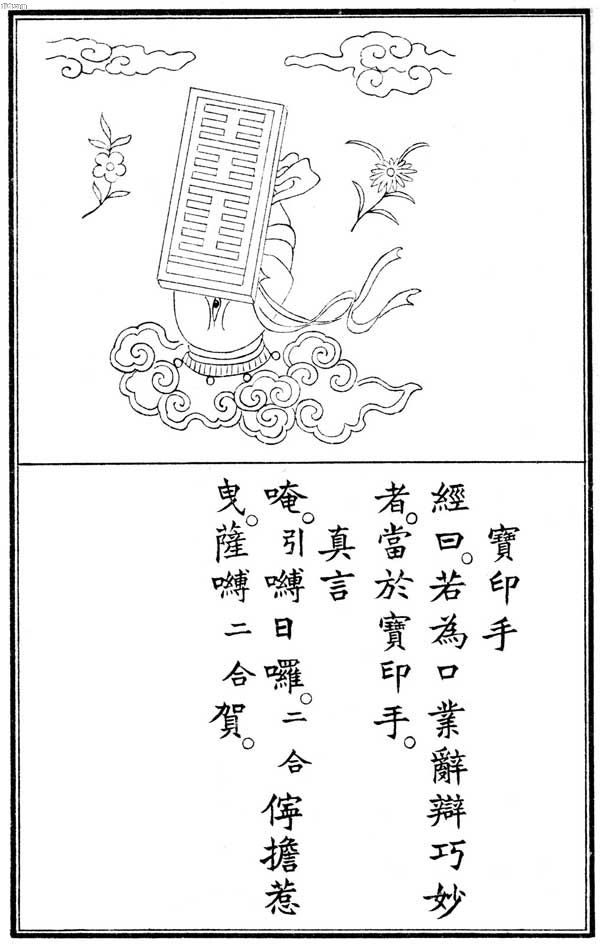 寶印手
經曰。若為口業辭辯巧妙
者。當於寶印手。
真言
唵。引嚩日囉。二合儜擔惹
曳。薩嚩二合賀。